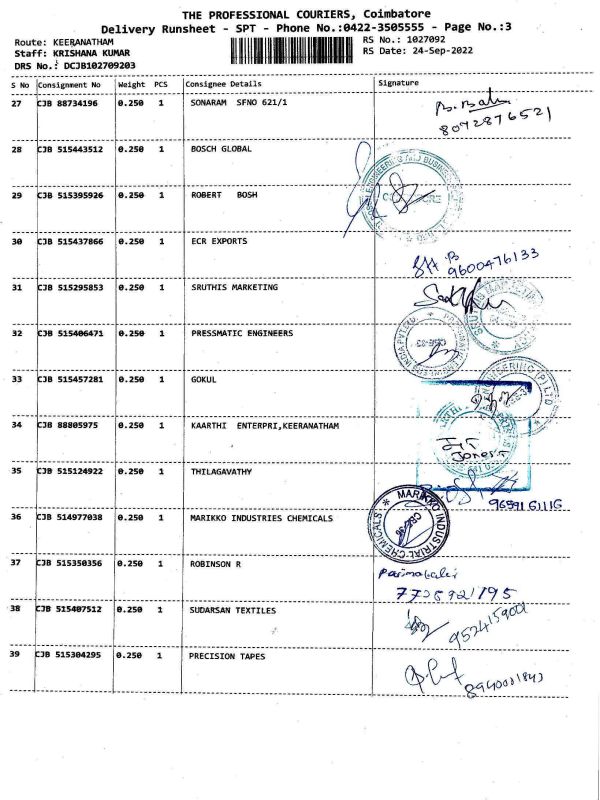 THE PROFESSIONAL COURIERS, Coimbatore
Delivery Runsheet - SPT - Phone No.:0422-3505555 - Page No.:3
Route: KEERANATHAM RS No.: 1027092
Staff: KRISHANA KUMAR RS Date: 24-Sep-2022
DRS No.: DCJB102709203
S No Consignment No Weight PCS Consignee Details Signature
27 CJB 88734196 0.250 1 SONARAM SFNO 621/1
8072876521
28 CJB 515443512 0.250 1 BOSCH GLOBAL
29 CJB 515395926 0.250 1 ROBERT BOSH
30 CJB 515437866 0.250 1 ECR EXPORTS
9600476133
31 CJB 515295853 0.250 1 SRUTHIS MARKETING
32 CJB 515406471 0.250 1 PRESSMATIC ENGINEERS
33 CJB 515457281 0.250 1 GOKUL
34 CJB 88805975 0.250 1 KAARTHI ENTERPRI,KEERANATHAM
35 CJB 515124922 0.250 1 THILAGAVATHY
9659161116
36 CJB 514977038 0.250 1 MARIKKO INDUSTRIES CHEMICALS
MARIKKO INDUSTRIAL CHEMICALS
CBE-35
37 CJB 515350356 0.250 1 ROBINSON R
38 CJB 515407512 0.250 1 SUDARSAN TEXTILES
9524159001
39 CJB 515304295 0.250 1 PRECISION TAPES